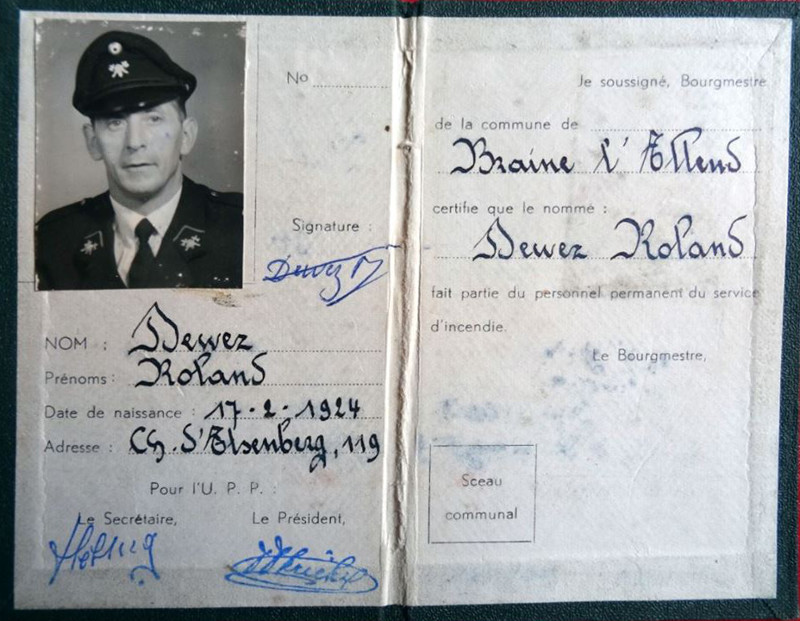 No
Signature :
Dewez R
NOM : Dewez
Prénoms : Roland
Date de naissance : 17-2-1924
Adresse : Ch. d'Alsenberg, 119
Pour l'U. P. P. :
Le Secrétaire, Le Président,
Je soussigné, Bourgmestre
de la commune de
Braine l'Alleud
certifie que le nommé :
Dewez Roland
fait partie du personnel permanent du service
d'incendie.
Le Bourgmestre,
Sceau
communal